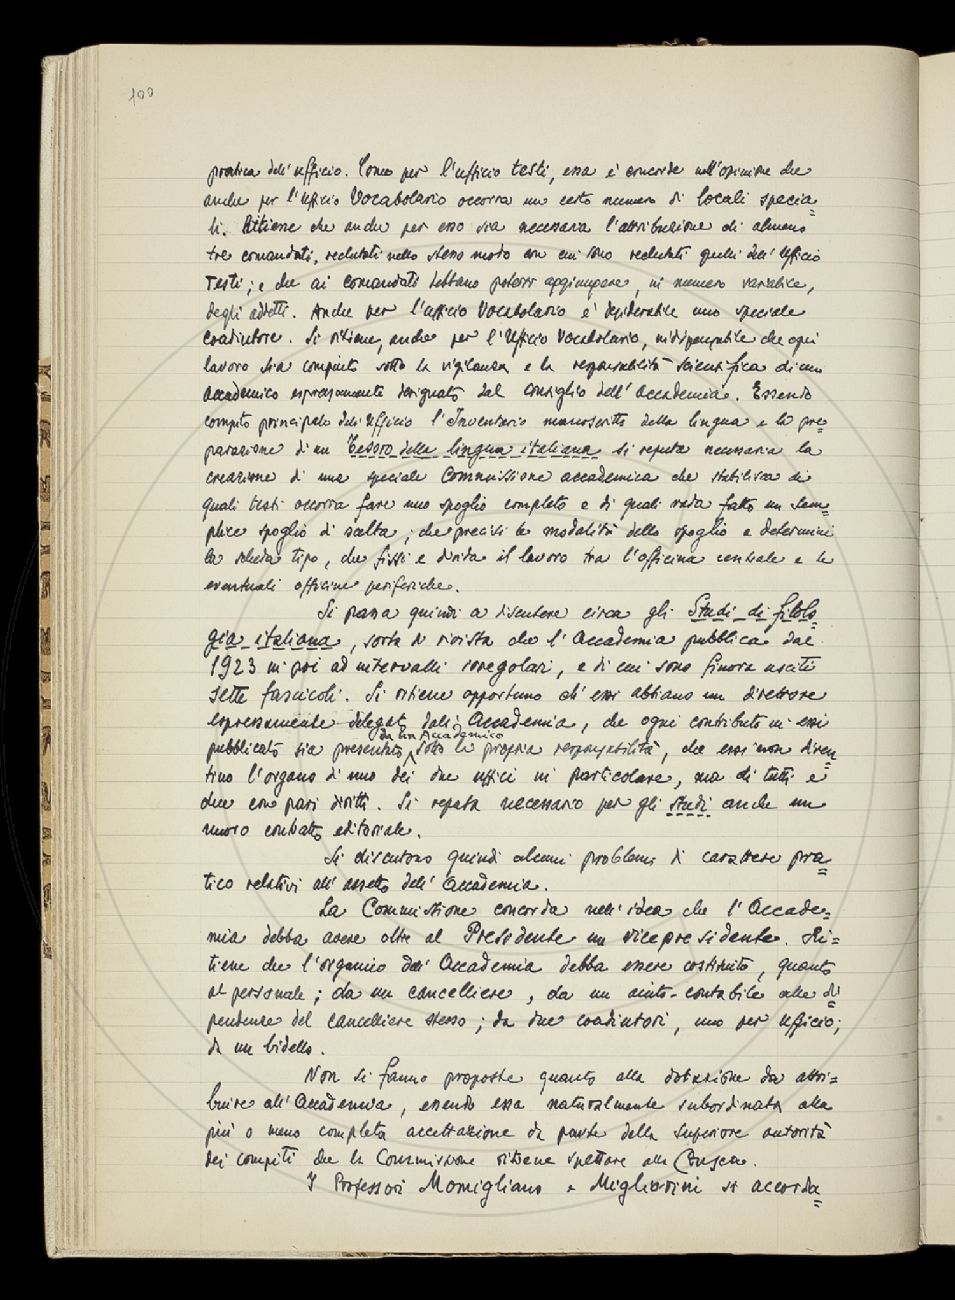 100
pratica dell'ufficio. Come per l'ufficio testi, essa è concorde nell'opinione che
anche per l'ufficio Vocabolario occorra un certo numero di locali specia=
li. Ritiene che anche per esso sia necessaria l'attribuzione di almeno
tre comandati, reclutati nello stesso modo con cui sono reclutati quelli dell'ufficio
Testi; e che ai comandati debbano potersi aggiungere, in numero variabile,
degli addetti. Anche per l'ufficio Vocabolario è desiderabile uno speciale
coadiutore. Si ritiene, anche per l'Ufficio Vocabolario, indispensabile che ogni
lavoro sia compiuto sotto la vigilanza e la responsabilità scientifica di un
Accademico espressamente designato dal consiglio dell'Accademia. Essendo
compito principale dell'Ufficio l'Inventario manoscritto della lingua e la pre=
parazione di un Tesoro della lingua italiana si reputa necessaria la
creazione di una speciale Commissione accademica che stabilisca di
quali testi occorra fare uno spoglio completo e di quali vada fatto un sem=
plice spoglio di scelta; che precisi le modalità dello spoglio e determini
la scheda tipo, che fissi e divida il lavoro tra l'officina centrale e le
eventuali officine periferiche.
Si passa quindi a discutere circa gli Studi di filolo=
gia italiana, sorta di rivista che l'Accademia pubblica dal
1923 in poi ad intervalli irregolari, e di cui sono finora usciti
sette fascicoli. Si ritiene opportuno ch'essi abbiano un direttore
espressamente delegato dall'Accademia, che ogni contributo in essi
pubblicato sia presentato da un Accademico sotto la propria responsabilità, che essi non diven=
tino l'organo di uno dei due uffici in particolare, ma di tutti e
due con pari diritti. Si reputa necessario per gli studi anche un
nuovo contratto editoriale.
Si discutono quindi alcuni problemi di carattere pra=
tico relativi all'assetto dell'Accademia.
La Commissione concorda nell'idea che l'Accade=
mia debba avere oltre al Presidente un vicepresidente. Ri=
tiene che l'organico dell'Accademia debba essere costituito, quanto
al personale; da un cancelliere, da un aiuto-contabile alle di=
pendenze del cancelliere stesso; da due coadiutori, uno per ufficio;
da un bidello.
Non si fanno proposte quanto alla dotazione da attri=
buire all'Accademia, essendo essa naturalmente subordinata alla
più o meno completa accettazione da parte della superiore autorità
dei compiti che la Commissione ritiene spettare alla Crusca.
I Professori Momigliano e Migliorini si accorda=